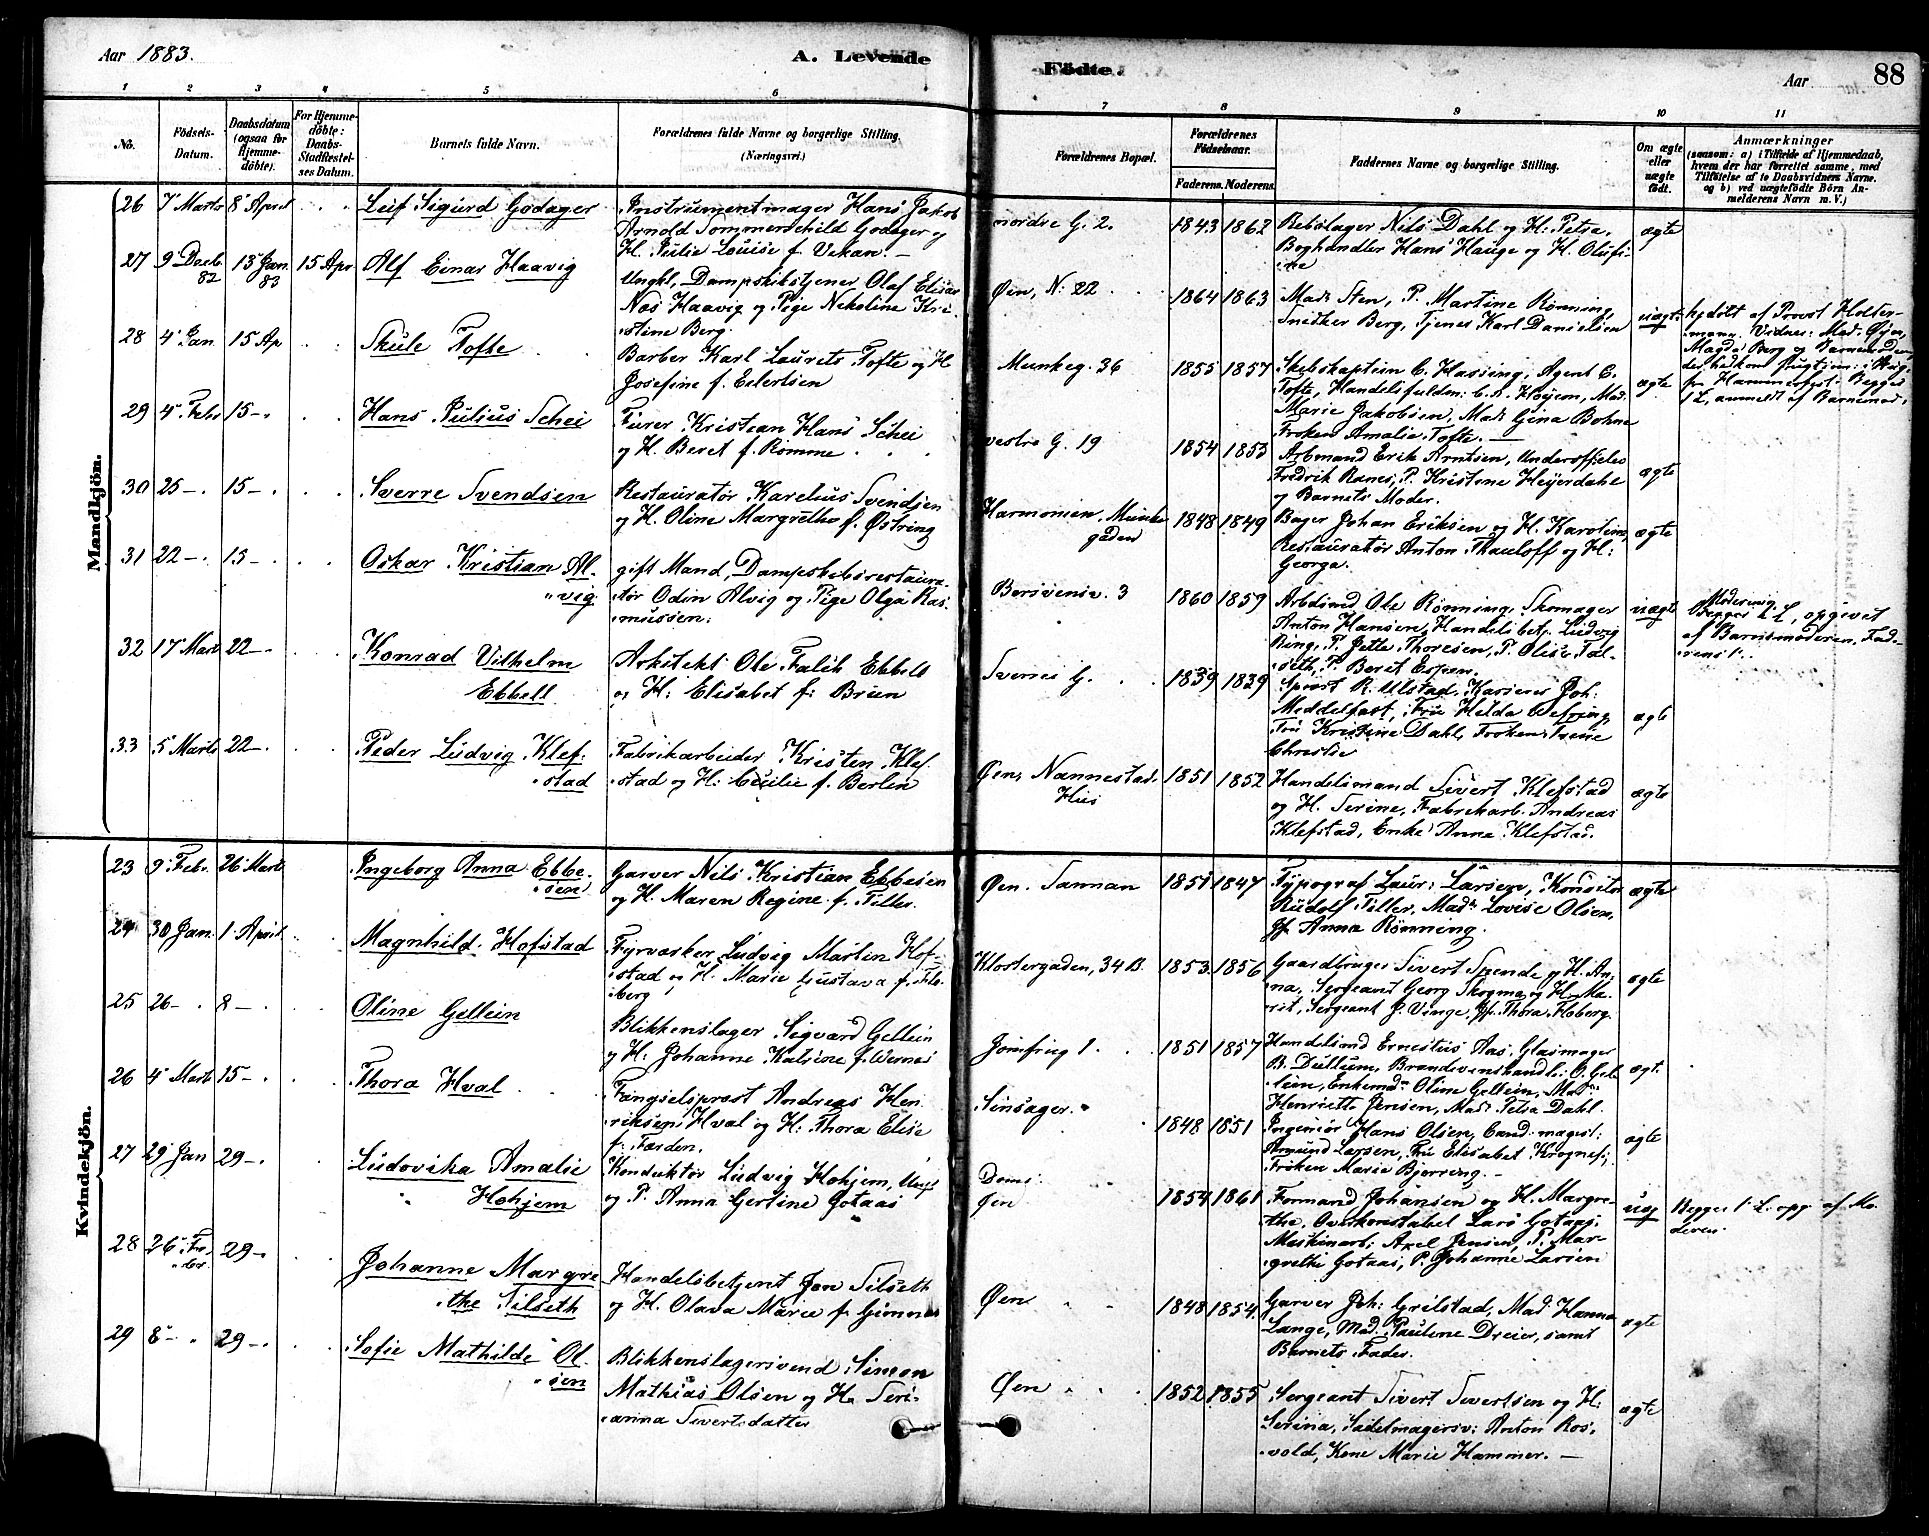 Aar 1883.
A. Levende
Födte.
Aar
88
1 2 3 4 5 6 7 8 9 10 11
No.
Födsels-Datum.
Daabsdatum (ogsaa for Hjemmedöbte).
For Hjemmedöbte: Daabs-Stadfæstelses Datum.
Barnets fulde Navn.
Forældrenes fulde Navne og borgerlige Stilling. (Næringsvei.)
Forældrenes Bopæl.
Forældrenes Födselsaar.
Faderens. Moderens.
Faddernes Navne og borgerlige Stilling.
Om ægte eller uægte födt.
Anmærkninger
(saasom: a) i Tilfælde af Hjemmedaab, hvem der har forrettet samme, med Tilföielse af to Daabsvidners Navne. og b) ved uægtefödte Börn Anmelderens Navn m. V.)
Mandkjön.
26 7 Marts 8 April Leif Sigurd Godager
Instrumentmager Hans Jakob
Arnold Sommerschild Godager og
H. Julie Louise f. Vekan.
nordre G. 2. 1843 1862
Rebslager Nils Dahl og H. Petra,
Boghandler Hans Hauge og H. Olufi-
ne
ægte
27 9 Decb 82 13 Jan. 83 15 Apr Alf Einar Haavig
Ungkl, Dampskibstjener Olaf Elisar
Næs Haavig og Pige Nekoline Kri-
stine Berg.
Øen, N: 22 1864 1863
Mad: Sten, P. Martine Rønning,
Snedker Berg, Tjener Karl Danielsen
uægte
hjdöbt af Provst Holter-
mann, Vidner: Mad: Øyen,
Magda Berg og Barnemoderen,
1 L, anmeldt af Barnemod.
28 4 Jan 15 Ap Skule Tofte
Barber Karl Laurets Tofte og H
Josefine f. Eilertsen
Munkeg. 36 1855 1857
Skibskaptein C. Hassing, Agent C.
Tofte, Handelsfuldm: C. A. Höyem, Mad.
Marie Jakobsen, Mad: Gina Bohne
Frøken Amalia Tofte.
ægte
29 4 Febr 15 Hans Julius Schei
Furer Kristian Hans Schei
og H. Beret f. Romme
vestre G. 19 1854 1853
Arbmand Erik Arntsen, Underofficer
Fredrik Ranes, P. Kristine Heyerdahl
og Barnets Moder.
ægte
30 25 15 Sverre Svendsen
Restauratør Karelius Svendsen
og H. Oline Margrethe f. Østring
Harmonien, Munke
gaden
1848 1849
Bager Johan Eriksen og H. Karoline,
Restauratør Anton Thauloff og H:
Georga.
ægte
31 22 15 Oskar Kristian Al-
vig
gift Mand, Dampskibsrestaura-
tør Odin Alvig og Pige Olga Ras-
mussen.
3 1860 1859
Arbdmd Ole Rønning, Skomager
Anton Hansen, Handelsbetj. Ludvig
Ring, P. Jette Thoresen, P. Olise Fal-
seth, P. Beret Espen
uægte
Moderens
Begges 1 L, opgivet
af Barnemoderen. Fad-
erens 1.
32 17 Mart 22 Konrad Vilhelm
Ebbell
Arkitekt Ole Falch Ebbell
og H: Elisabet f: Bruun
Sverres G. 1839 1839
R. Ulstad, Joh:
Meddelfart, Fru Hilda Wefring,
Fru Kristine Dahl, Frøken Irene
Christie
ægte
33 5 Marts 22 Peder Ludvig Klef-
stad
Fabrikarbeider Kristen Klef-
stad og H: Cecilie f. Berlin
Øen, Nannestad-
Hus
1851 1852
Handelsmand Sivert Klefstad
og H. Serine, Fabrikarb. Andreas
Klefstad, Enke Anna Klefstad.
ægte
Kvindekjön.
23 9 Febr. 26 Marts Ingeborg Anna Ebbe-
sen
Garver Nils Kristian Ebbesen
og H. Maren Regine f. Tiller
Øen. Sannan 1851 1847
Typograf Laur: Larsen, Konditor
Rudolf Tiller, Mad: Lovise Olsen,
Gf. Anna Rønning.
ægte
24 30 Jan. 1 April Magnhild Hofstad
Fyrværker Ludvig Martin Hof-
stad og H. Marie Gustava f. Flo-
berg
Klostergaden, 34 B. 1853 1856
Gaardbruger Sivert Stende og H. An-
na, Sergeant Georg Skogmo og H. Ma-
rit, Sergeant J. Vinge, Gf. Thora Floberg.
ægte
25 26 8 Oline Gellein
Blikkenslager Sigvard Gellein
og H: Johanne Katrine f. Wernes
Jomfrug 1. 1851 1857
Handelsmd Ernestus Aas, Glasmager
B. Dullum, Brændevinshandl: O. Gel-
lein, Enkemad: Oline Gellein, Mad:
Henriette Jensen, Mad: Petra Dahl.
ægt.
26 4 Marts 15 Thora Hval
Fængselsprest Andreas Hen-
riksen Hval og H: Thora Elise
f. Færden.
Sinsager. 1848 1851
Ingeniør Hans Olsen, Cand: magist:
Amund Larsen, Fru Elisabet Krogness,
Frøken Maria Bjerring.
ægte
27 29 Jan 29 Ludovika Amalie
Hohjem
Konduktør Ludvig Hohjem, Ungk
og P. Anna Gertine Gotaas
Øen 1854 1861
Formand Johansen og H. Margre-
the, Overkonstabel Lars Gotaas,
Maskinarb: Axel Jensen, P. Mar-
grethe Gotaas, P. Johanne Larsen
uæg
Begges 1 L. opg. af Mo-
deren
28 26 Fe-
br. 29 Johanne Margre
the Silseth
Handelsbetjent Jon Silseth
og H. Olava Marie f. Gimnes
Øen 1848 1854.
Garver Joh: Grilstad, Mad: Hanna
Lange, Mad: Pauline Dreier, samt
Barnets Fader.
ægte
29 8 29 Sofie Mathilde Ol-
sen
Blikkenslagersvend Simon
Mathias Olsen og H. Seri-
anna Sivertsdatter
Øen 1852 1855
Sergeant Sivert Sivertsen og H:
Serina, Sadelmagersv: Anton Ros-
vold, Kone Marie Hammer.
ægte